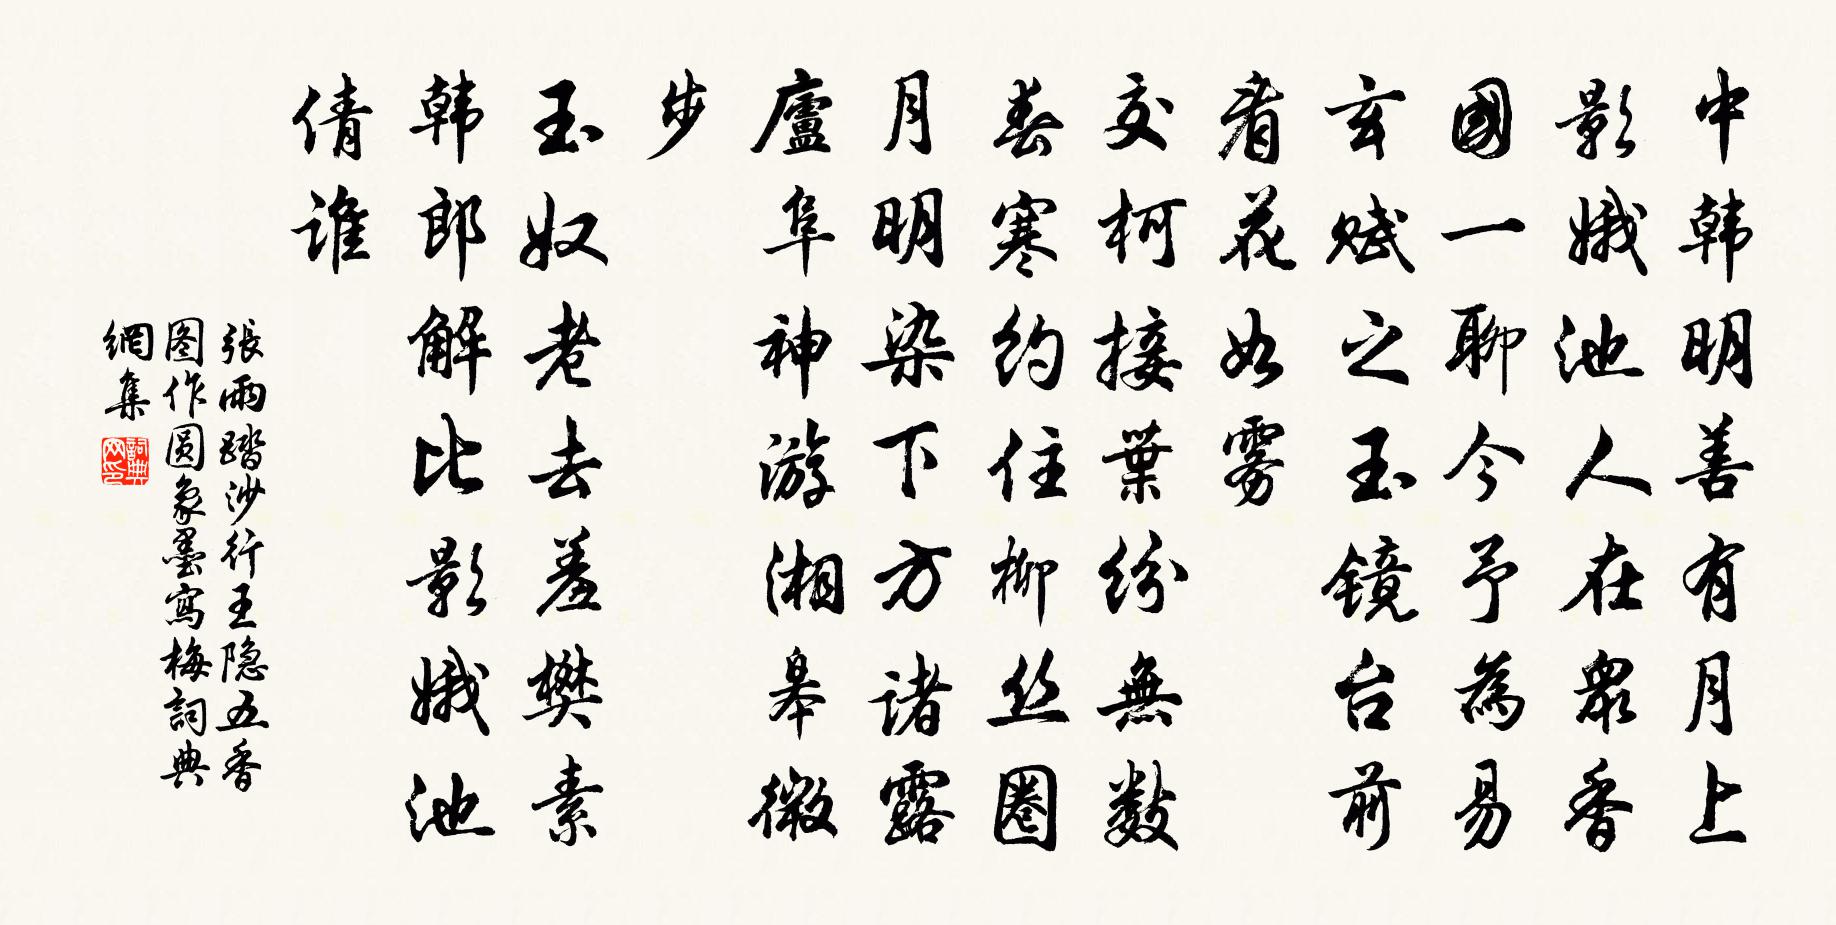 中韩明善有月上
影娥池人在眾香
國一聊今予為易
玄赋之玉镜台前
看花如雾
交柯接葉纷無数
春寒约住柳丝圈
月明染下方诸露
廬阜神游湘皋微
步
玉奴老去羞樊素
韩郎解比影娥池
倩谁
張雨踏沙行王隐五香
图作圆象墨寫梅詞典
網集
詞典网印